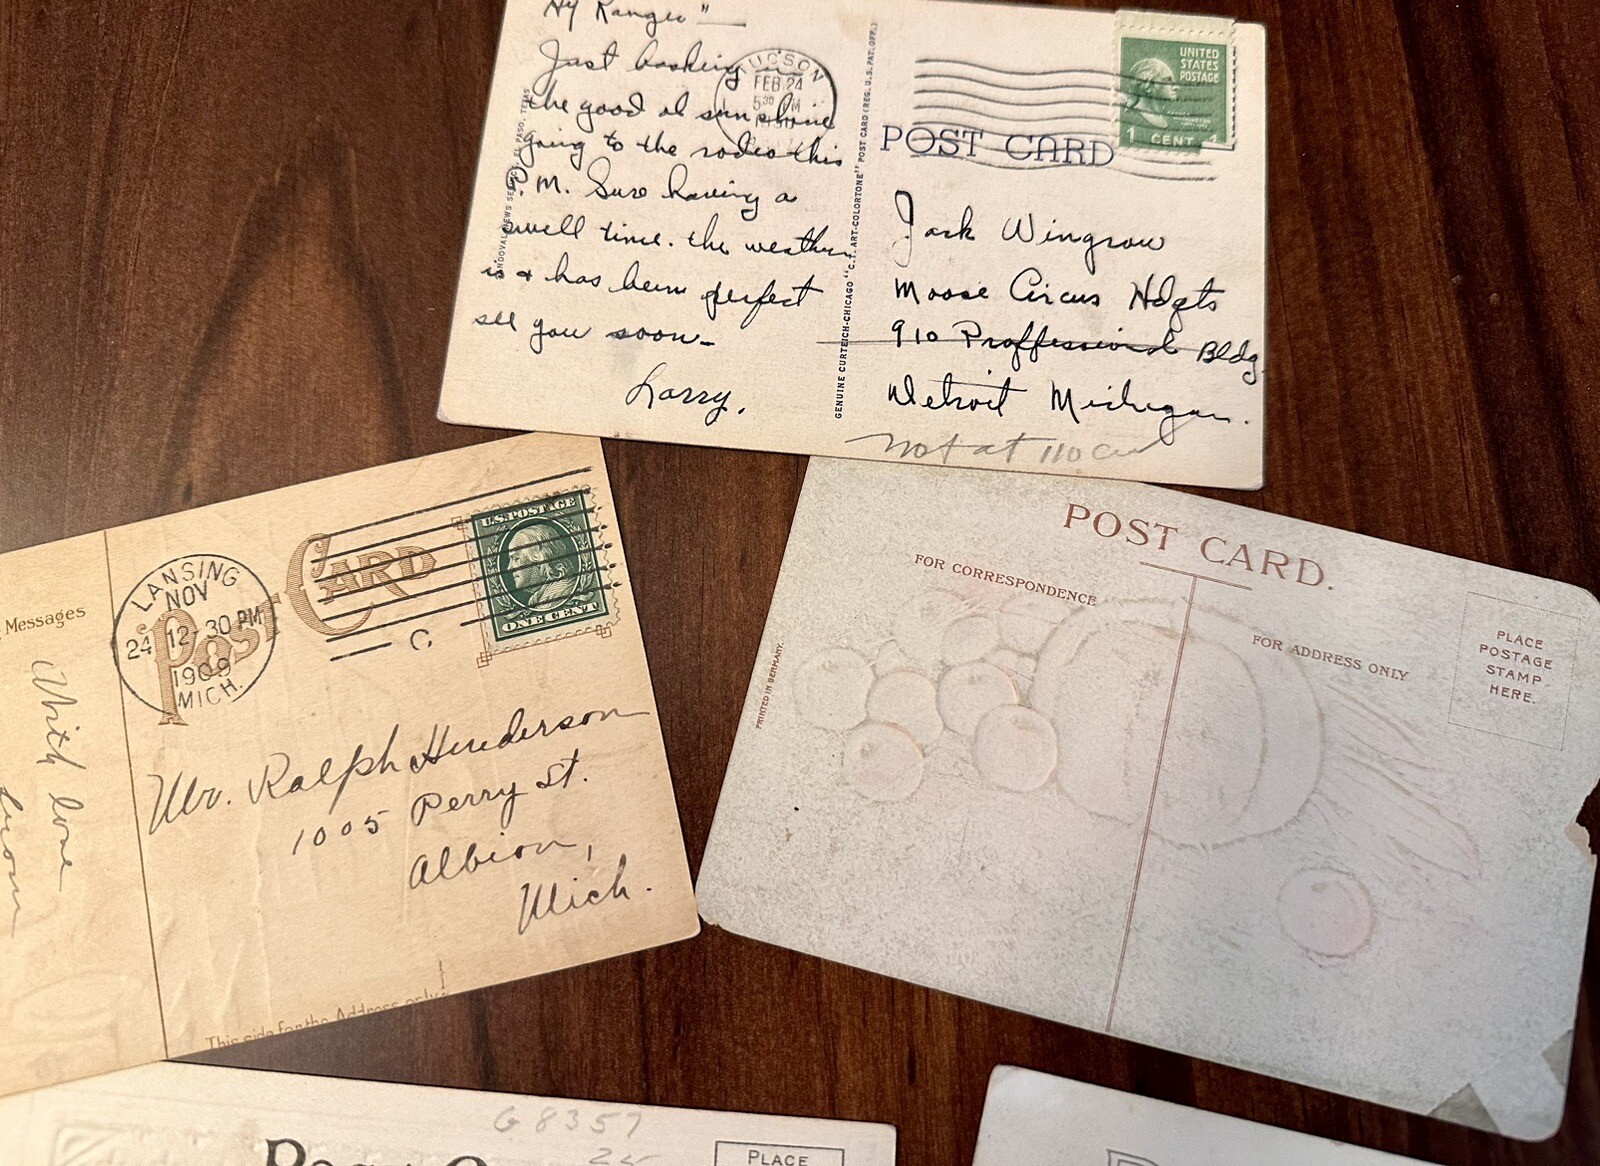 Hy Ranger"
Just basking in
the good ol sunshine
going to the rodeo this
P.M. Sure having a
swell time. the weather
is & has been perfect
see you soon-
Larry.
TUCSON
FEB 24
5 30 PM
SANDOVAL NEWS SERVICE, EL PASO, TEXAS
GENUINE CURTEICH-CHICAGO "C.T. ART-COLORTONE" POST CARD (REG. U.S. PAT. OFF.)
POST CARD
UNITED
STATES
POSTAGE
1 CENT 1
Jack Wingrow
Moose Circus Hdqts
910 Proffessional Bldg.
Detroit Michigan.
Not at 110
Messages
With love
from
LANSING
NOV
24 12-30 PM
1909
MICH.
POST CARD
C
U.S. POSTAGE
ONE CENT
Mr. Ralph Henderson
1005 Perry St.
Albion,
Mich.
This side for the Address only.
POST CARD.
FOR CORRESPONDENCE
FOR ADDRESS ONLY
PLACE
POSTAGE
STAMP
HERE.
PRINTED IN GERMANY.
G 8357
25
POST
PLACE